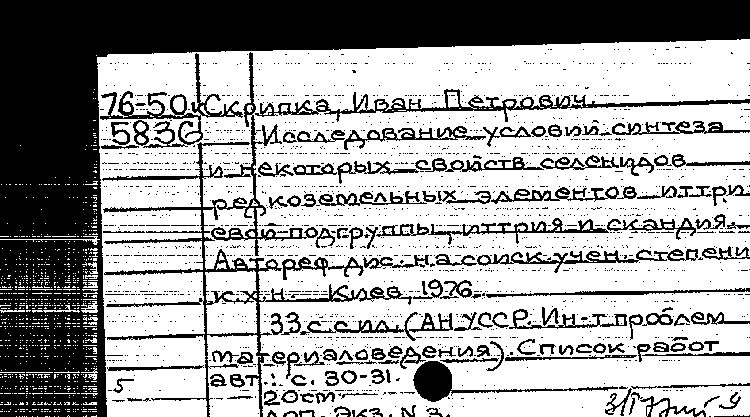 76-50к Скрипка, Иван Петрович.
5836 Исследование условий синтеза
и некоторых свойств селенидов
редкоземельных элементов иттри
евой подгруппы, иттрия и скандия.
Автореф дис. на соиск учен. степени
к.х.н. Киев, 1976.
33 с с ил. (АН УССР. Ин-т проблем
материаловедения). Список работ
5 авт.: с. 30-31.
20см.
Доп. экз. N 3.